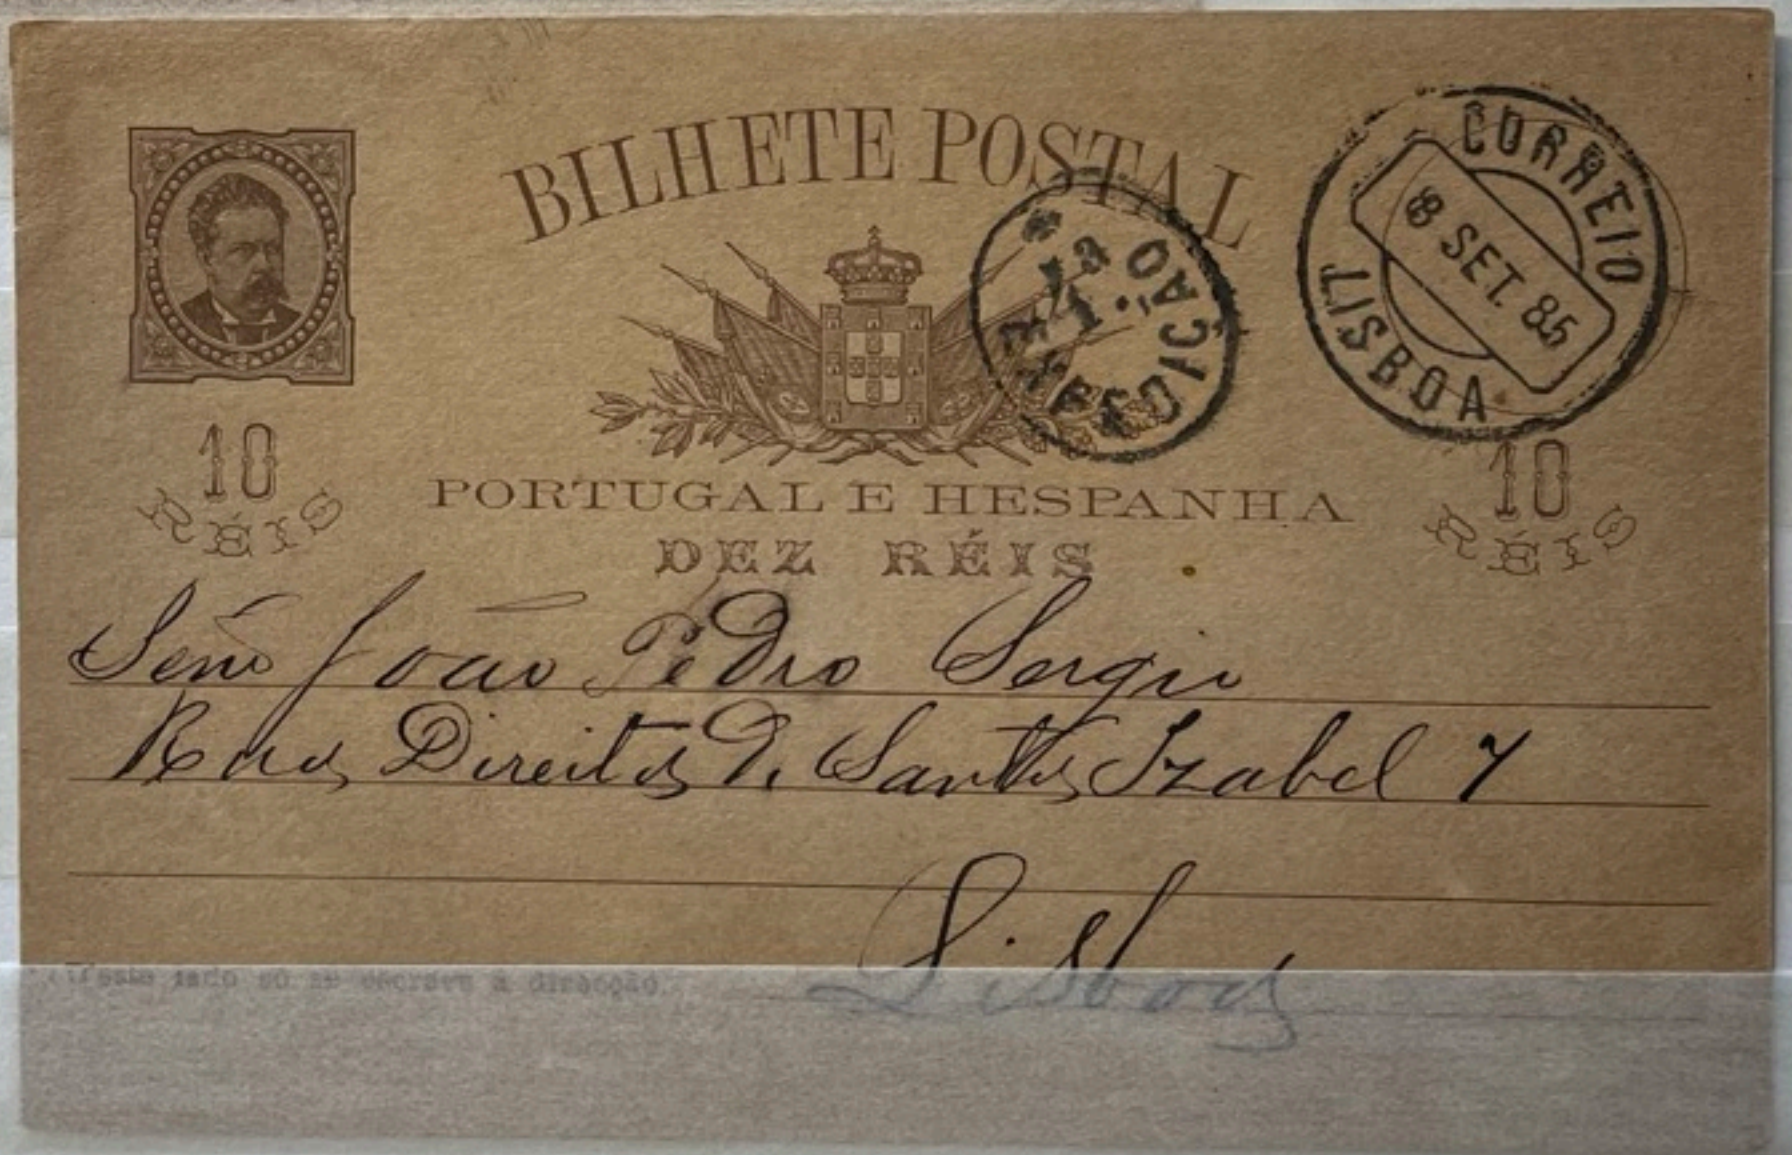 BILHETE POSTAL
CORREIO
8 SET. 85
LISBOA
1ª EXPEDIÇÃO
10 RÉIS
10 RÉIS
PORTUGAL E HESPANHA
DEZ RÉIS
Señr João Pedro Sergio
Rua Direita De Santa Izabel 7
Lisboa
N'este lado só se escreve a direcção.